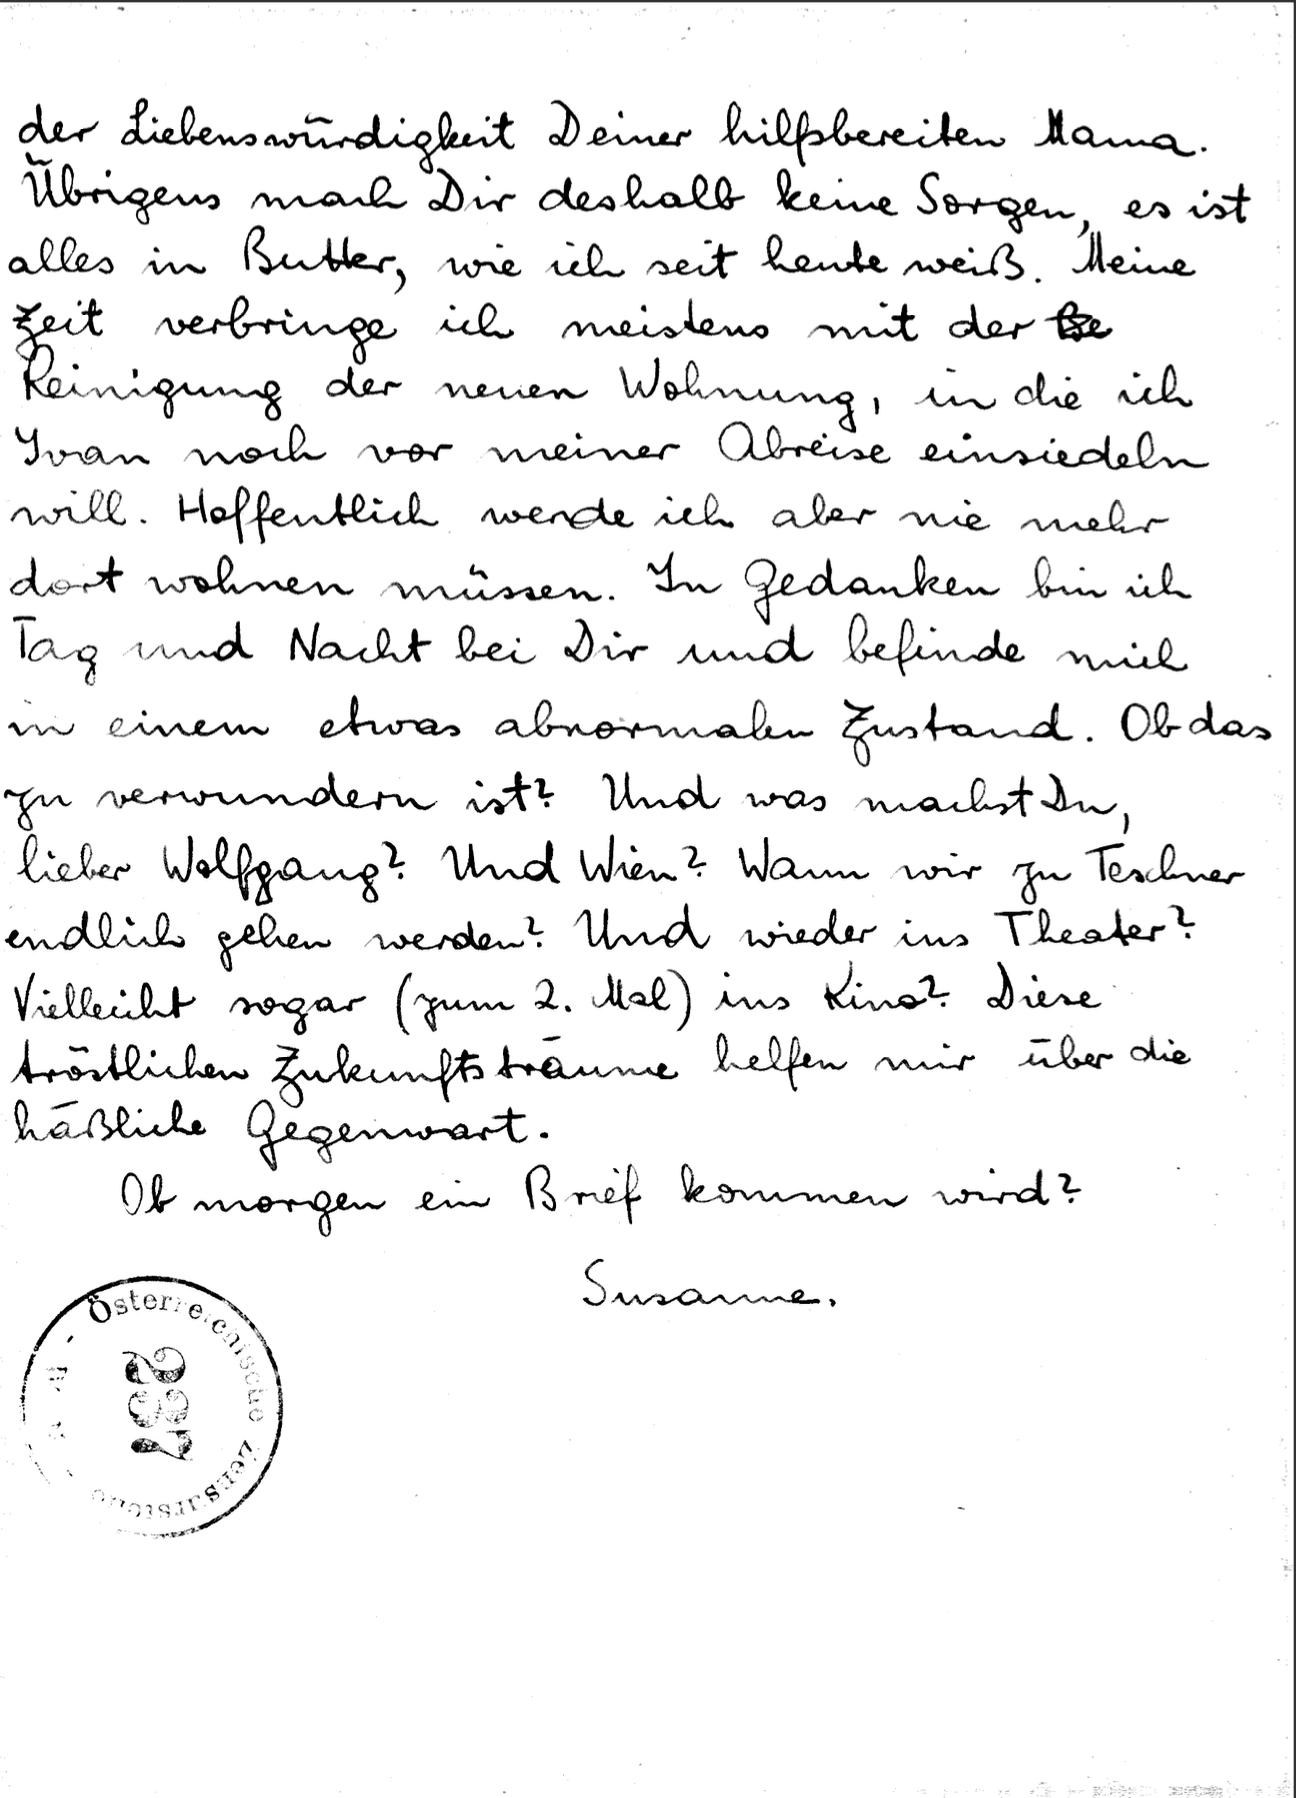 der Liebenswürdigkeit Deiner hilfsbereiten Mama.
Übrigens mach Dir deshalb keine Sorgen, es ist
alles in Butter, wie ich seit heute weiß. Meine
Zeit verbringe ich meistens mit der Be
Reinigung der neuen Wohnung, in die ich
Ivan noch vor meiner Abreise einsiedeln
will. Hoffentlich werde ich aber nie mehr
dort wohnen müssen. In Gedanken bin ich
Tag und Nacht bei Dir und befinde mich
in einem etwas abnormalen Zustand. Ob das
zu verwundern ist? Und was machst Du,
lieber Wolfgang? Und Wien? Wann wir zu Teschner
endlich gehen werden? Und wieder ins Theater?
Vielleicht sogar (zum 2. Mal) ins Kino? Diese
tröstlichen Zukunftsträume helfen mir über die
häßliche Gegenwart.
Ob morgen ein Brief kommen wird?
Susanne.
Österreichische Zensurstelle
237